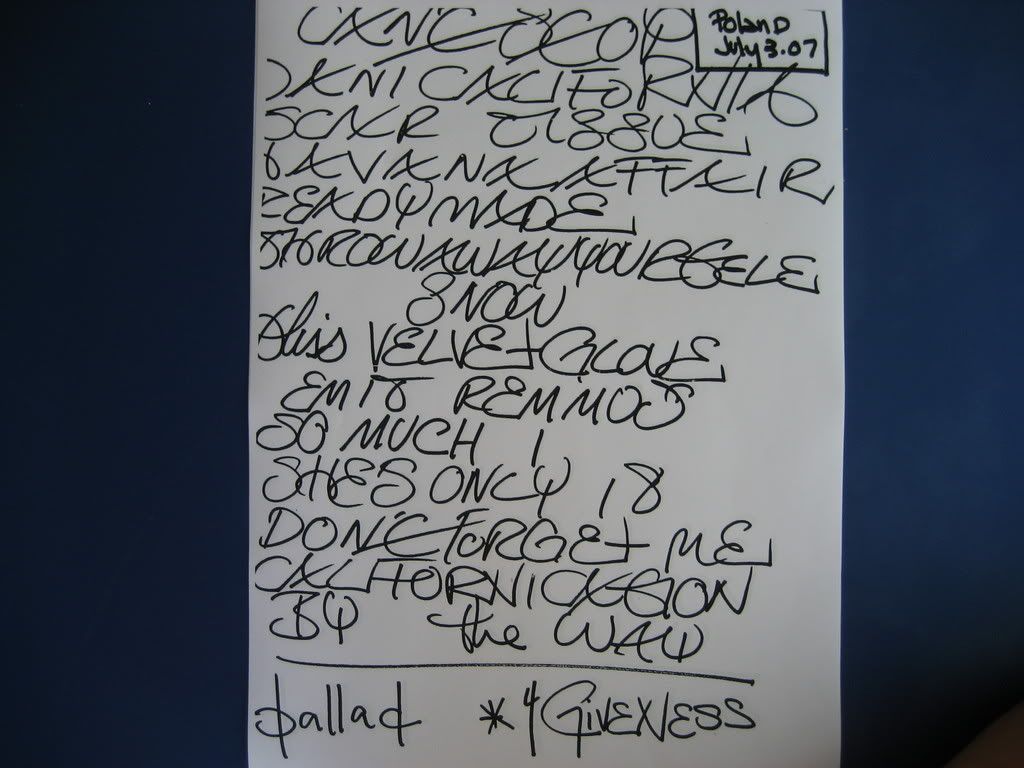 CANT STOP
Poland
July 3.07
DANI CALIFORNIA
SCAR TISSUE
HAVANA AFFAIR
READYMADE
THROWAWAYYOURTELE
SNOW
this VELVET GLOVE
EMIT REMMUS
SO MUCH I
SHES ONLY 18
DONT FORGET ME
CALIFORNICATION
BY the WAY
ballad * 4GIVENESS